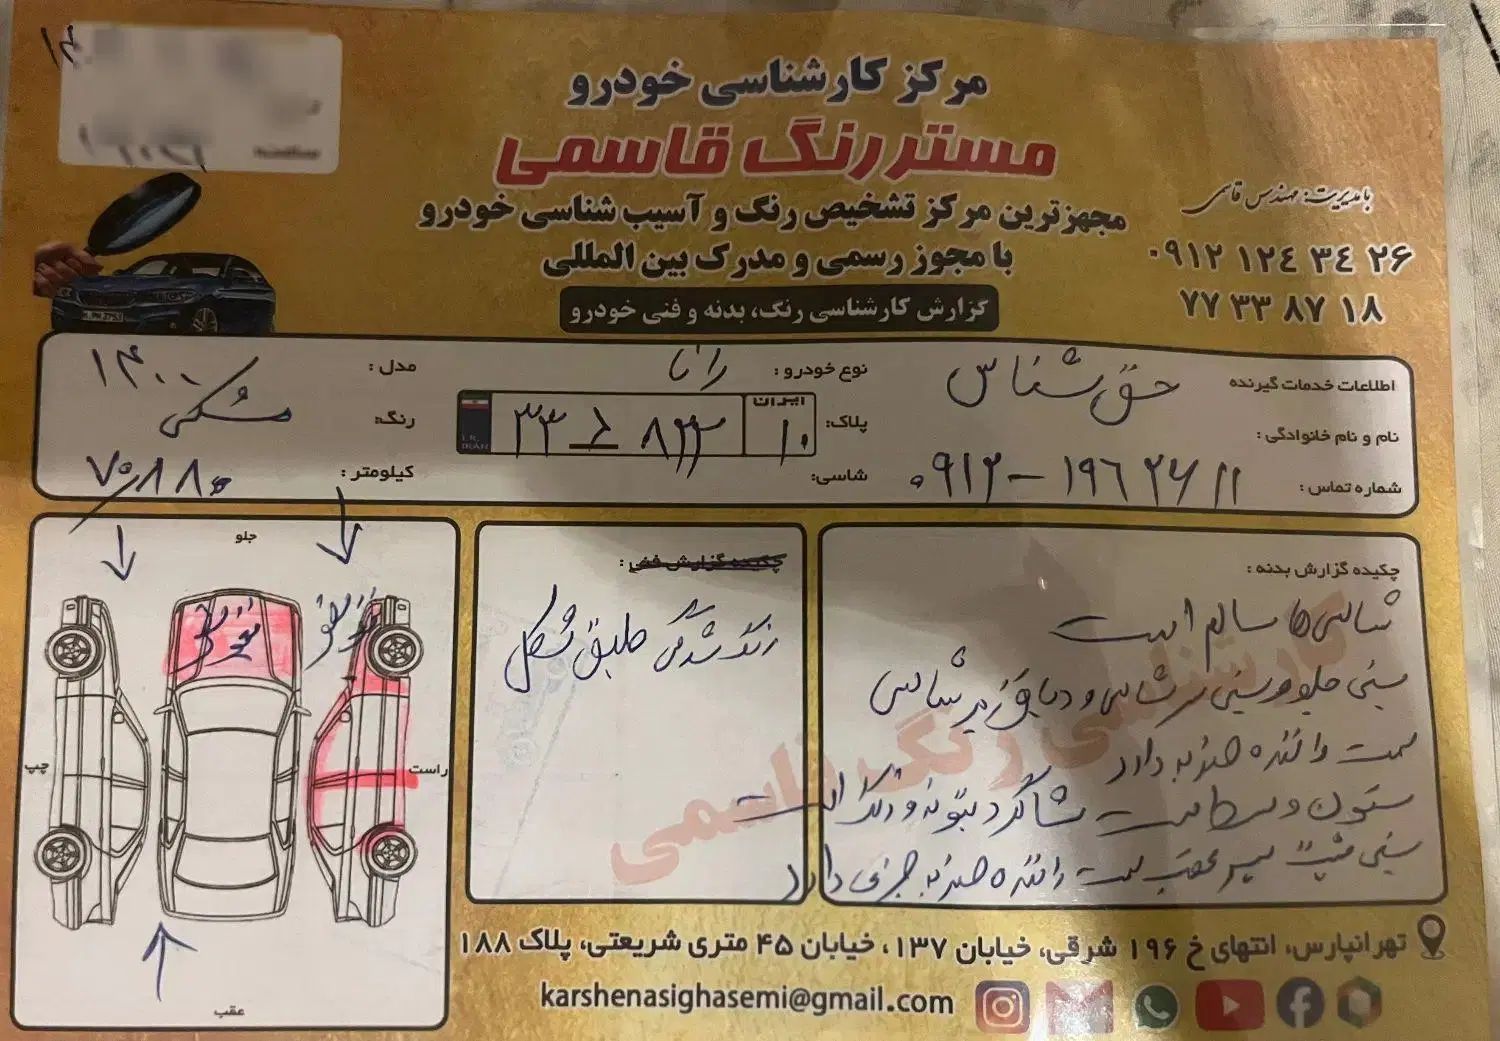 مرکز کارشناسی خودرو
مستر رنگ قاسمی
مجهزترین مرکز تشخیص رنگ و آسیب شناسی خودرو
با مجوز رسمی و مدرک بین المللی
با مدیریت: مهندس قاسمی
۰۹۱۲ ۱۲۴ ۳۴ ۲۶
۷۷ ۳۳ ۸۷ ۱۸
گزارش کارشناسی رنگ، بدنه و فنی خودرو
اطلاعات خدمات گیرنده
نام و نام خانوادگی: حق شناس
شماره تماس: ۰۹۱۲-۱۹۶۲۶۱۱
نوع خودرو: رانا
پلاک: ایران ۱۰ ۸۲۳ ۳۳
I.R. IRAN
شاسی:
مدل: ۱۴۰۰
رنگ: مشکی
کیلومتر: ۷۰۸۸۰
چکیده گزارش بدنه:
شاسی ها سالم است
سینی جلو و سینی سرشاسی و دماق زیر شاسی
سمت راننده ضربه دارد
ستون وسط سمت شاگرد بتونه و رنگ است
سینی پشت سپر عقب سمت راننده ضربه جزئی دارد
چکیده گزارش فنی:
رنگ شدگی طبق شکل
جلو
تعویض
راست
چپ
عقب
تهرانپارس، انتهای خ ۱۹۶ شرقی، خیابان ۱۳۷، خیابان ۴۵ متری شریعتی، پلاک ۱۸۸
karshenasighasemi@gmail.com
کارشناسی رنگ قاسمی